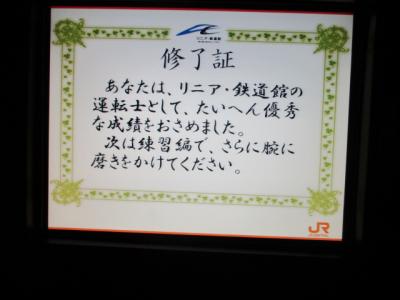 リニア・鉄道館
修了証
あなたは、リニア・鉄道館の
運転士として、たいへん優秀
な成績をおさめました。
次は練習編で、さらに腕に
磨きをかけてください。
JR